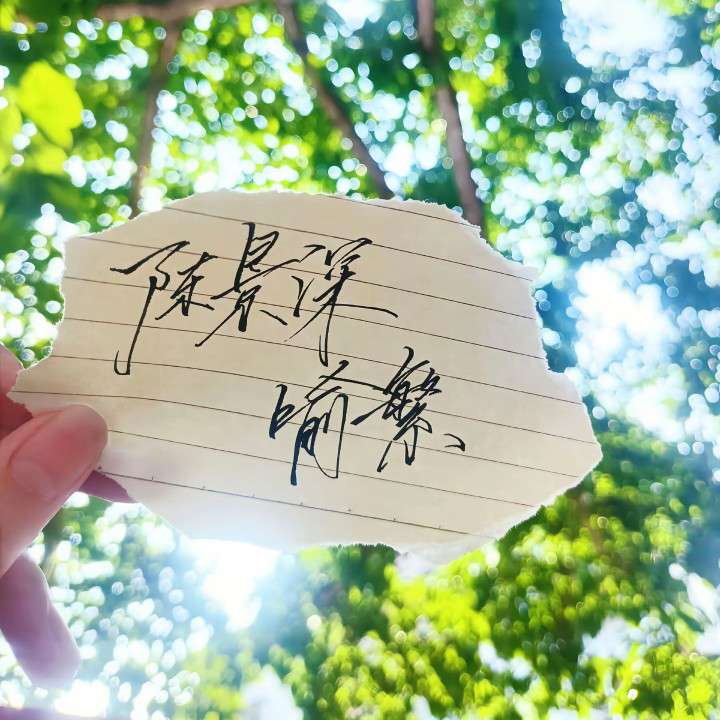 陈景深
喻繁